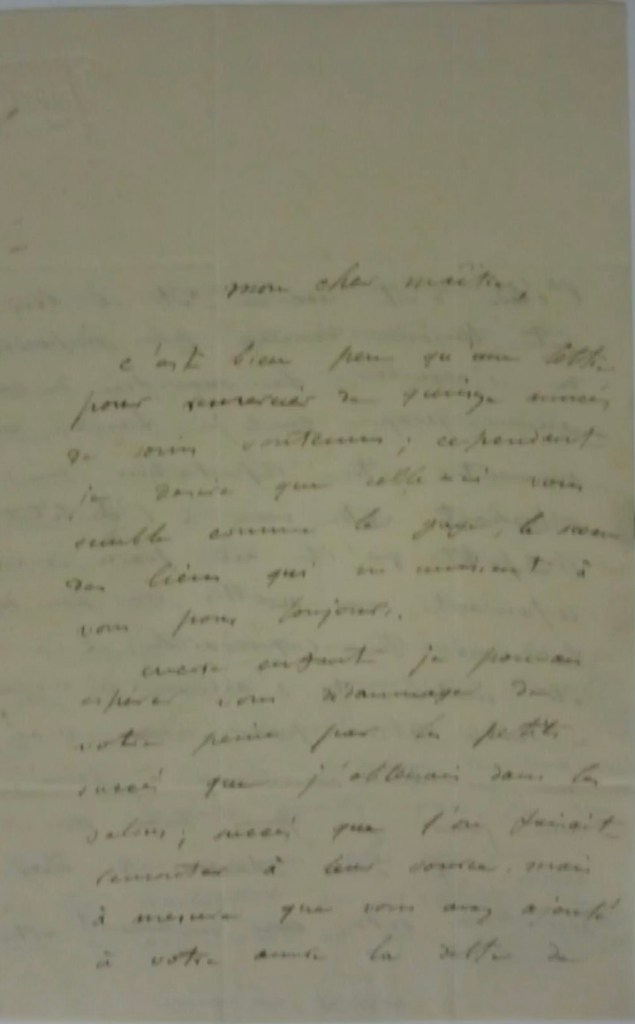 mon cher maître,
c'est bien peu qu'une lettre
pour remercier de quinze années
de soins soutenus ; cependant
je désire que celle-ci vous
semble comme le gage, le sceau
des liens qui m'unissent à
vous pour toujours.
encore enfant je pouvais
espérer vous dédommager de
votre peine par les petits
succès que j'obtenais dans les
salons ; succès que l'on faisait
remonter à leur source. mais
à mesure que vous avez ajouté
à votre œuvre la dette de